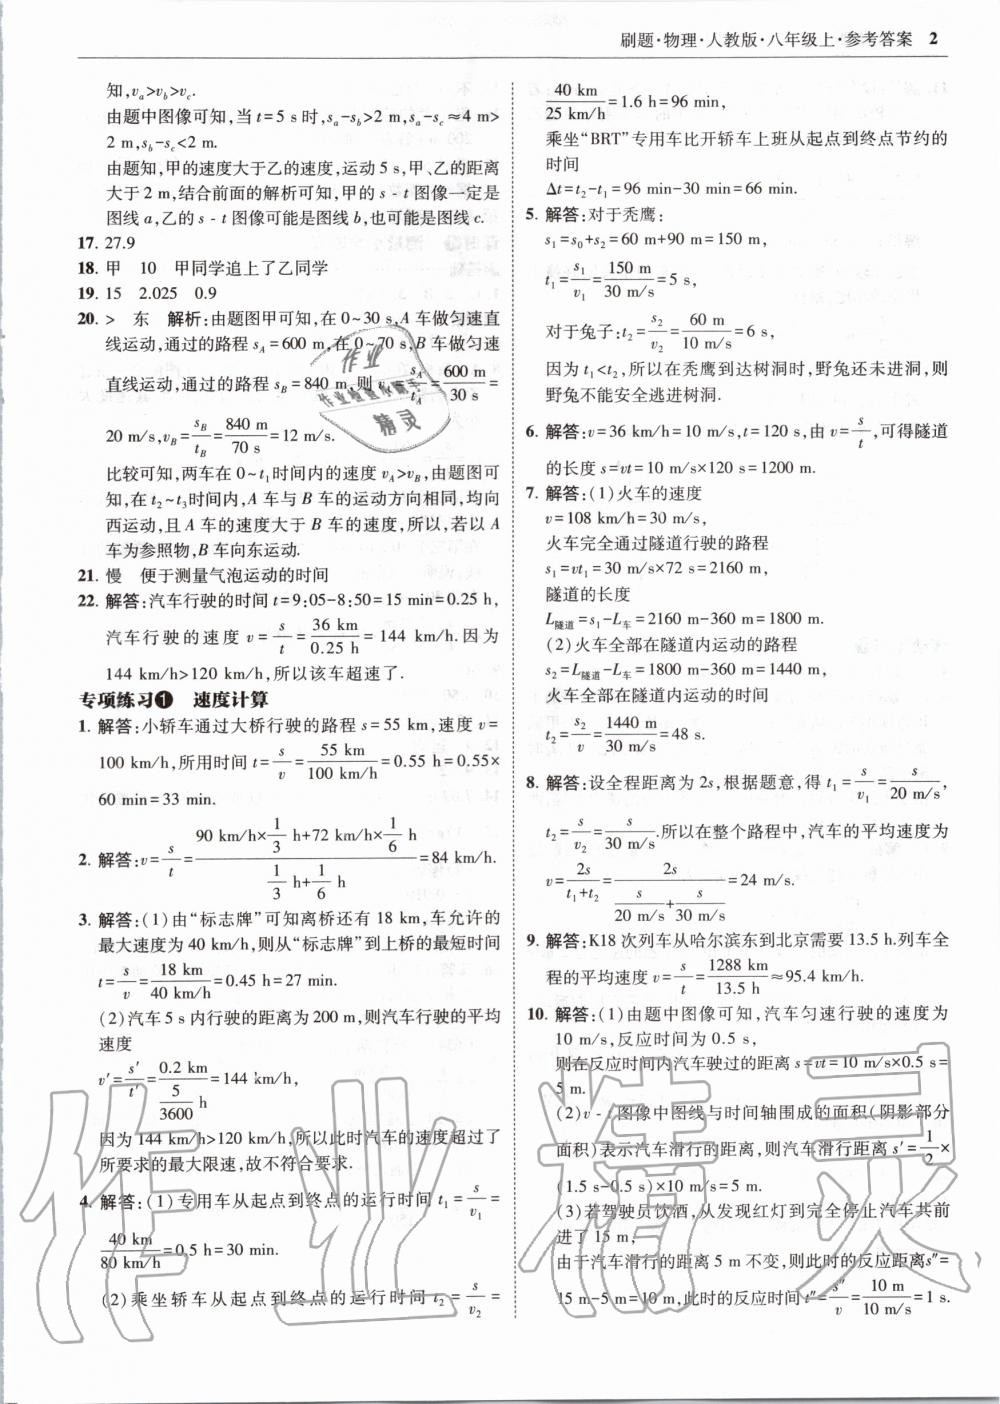 刷题·物理·人教版·八年级上·参考答案 2
知,vₐ>v_b>v_c.
由题中图像可知,当 t=5 s 时,sₐ-s_b>2 m,sₐ-s_c≈4 m>
2 m,s_b-s_c<2 m.
由题知,甲的速度大于乙的速度,运动 5 s,甲、乙的距离
大于 2 m,结合前面的解析可知,甲的 s-t 图像一定是
图线 a,乙的 s-t 图像可能是图线 b,也可能是图线 c.
17. 27.9
18. 甲 10 甲同学追上了乙同学
19. 15 2.025 0.9
20. > 东 解析:由题图甲可知,在 0~30 s,A 车做匀速直
线运动,通过的路程 s_A=600 m,在 0~70 s,B 车做匀速
直线运动,通过的路程 s_B=840 m,则 v_A=s_A/t_A=600 m/30 s=
20 m/s,v_B=s_B/t_B=840 m/70 s=12 m/s.
比较可知,两车在 0~t₁时间内的速度 v_A>v_B,由题图可
知,在 t₂~t₃时间内,A 车与 B 车的运动方向相同,均向
西运动,且 A 车的速度大于 B 车的速度,所以,若以 A
车为参照物,B 车向东运动.
21. 慢 便于测量气泡运动的时间
22. 解答:汽车行驶的时间 t=9:05-8:50=15 min=0.25 h,
汽车行驶的速度 v=s/t=36 km/0.25 h=144 km/h.因为
144 km/h>120 km/h,所以该车超速了.
专项练习❶ 速度计算
1. 解答:小轿车通过大桥行驶的路程 s=55 km,速度 v=
100 km/h,所用时间 t=s/v=55 km/100 km/h=0.55 h=0.55×
60 min=33 min.
2. 解答:v=s/t=(90 km/h×1/3 h+72 km/h×1/6 h)/(1/3 h+1/6 h)=84 km/h.
3. 解答:(1)由“标志牌”可知离桥还有 18 km,车允许的
最大速度为 40 km/h,则从“标志牌”到上桥的最短时间
t=s/v=18 km/40 km/h=0.45 h=27 min.
(2)汽车 5 s 内行驶的距离为 200 m,则汽车行驶的平均
速度
v′=s′/t′=0.2 km/(5/3600 h)=144 km/h,
因为 144 km/h>120 km/h,所以此时汽车的速度超过了
所要求的最大限速,故不符合要求.
4. 解答:(1)专用车从起点到终点的运行时间 t₁=s/v₁=
40 km/80 km/h=0.5 h=30 min.
(2)乘坐轿车从起点到终点的运行时间 t₂=s/v₂=
40 km/25 km/h=1.6 h=96 min,
乘坐“BRT”专用车比开轿车上班从起点到终点节约的
时间
Δt=t₂-t₁=96 min-30 min=66 min.
5. 解答:对于秃鹰:
s₁=s₀+s₂=60 m+90 m=150 m,
t₁=s₁/v₁=150 m/30 m/s=5 s,
对于兔子:t₂=s₂/v₂=60 m/10 m/s=6 s,
因为 t₁<t₂,所以在秃鹰到达树洞时,野兔还未进洞,则
野兔不能安全逃进树洞.
6. 解答:v=36 km/h=10 m/s,t=120 s,由 v=s/t,可得隧道
的长度 s=vt=10 m/s×120 s=1200 m.
7. 解答:(1)火车的速度
v=108 km/h=30 m/s,
火车完全通过隧道行驶的路程
s₁=vt₁=30 m/s×72 s=2160 m,
隧道的长度
L隧道=s₁-L车=2160 m-360 m=1800 m.
(2)火车全部在隧道内运动的路程
s₂=L隧道-L车=1800 m-360 m=1440 m,
火车全部在隧道内运动的时间
t₂=s₂/v=1440 m/30 m/s=48 s.
8. 解答:设全程距离为 2s,根据题意,得 t₁=s/v₁=s/20 m/s,
t₂=s/v₂=s/30 m/s.所以在整个路程中,汽车的平均速度为
v=2s/(t₁+t₂)=2s/(s/20 m/s+s/30 m/s)=24 m/s.
9. 解答:K18 次列车从哈尔滨东到北京需要 13.5 h.列车全
程的平均速度 v=s/t=1288 km/13.5 h≈95.4 km/h.
10. 解答:(1)由题中图像可知,汽车匀速行驶的速度为
10 m/s,反应时间为 0.5 s,
则在反应时间内汽车驶过的距离 s=vt=10 m/s×0.5 s=
5 m.
(2)v-t 图像中图线与时间轴围成的面积(阴影部分
面积)表示汽车滑行的距离,则汽车滑行距离 s′=1/2×
(1.5 s-0.5 s)×10 m/s=5 m.
(3)若驾驶员饮酒,从发现红灯到完全停止汽车共前
进了 15 m,
由于汽车滑行的距离 5 m 不变,则此时的反应距离 s″=
15 m-5 m=10 m,此时的反应时间 t″=s″/v=10 m/10 m/s=1 s.
作业
作业检查小助手
精灵
作业精灵